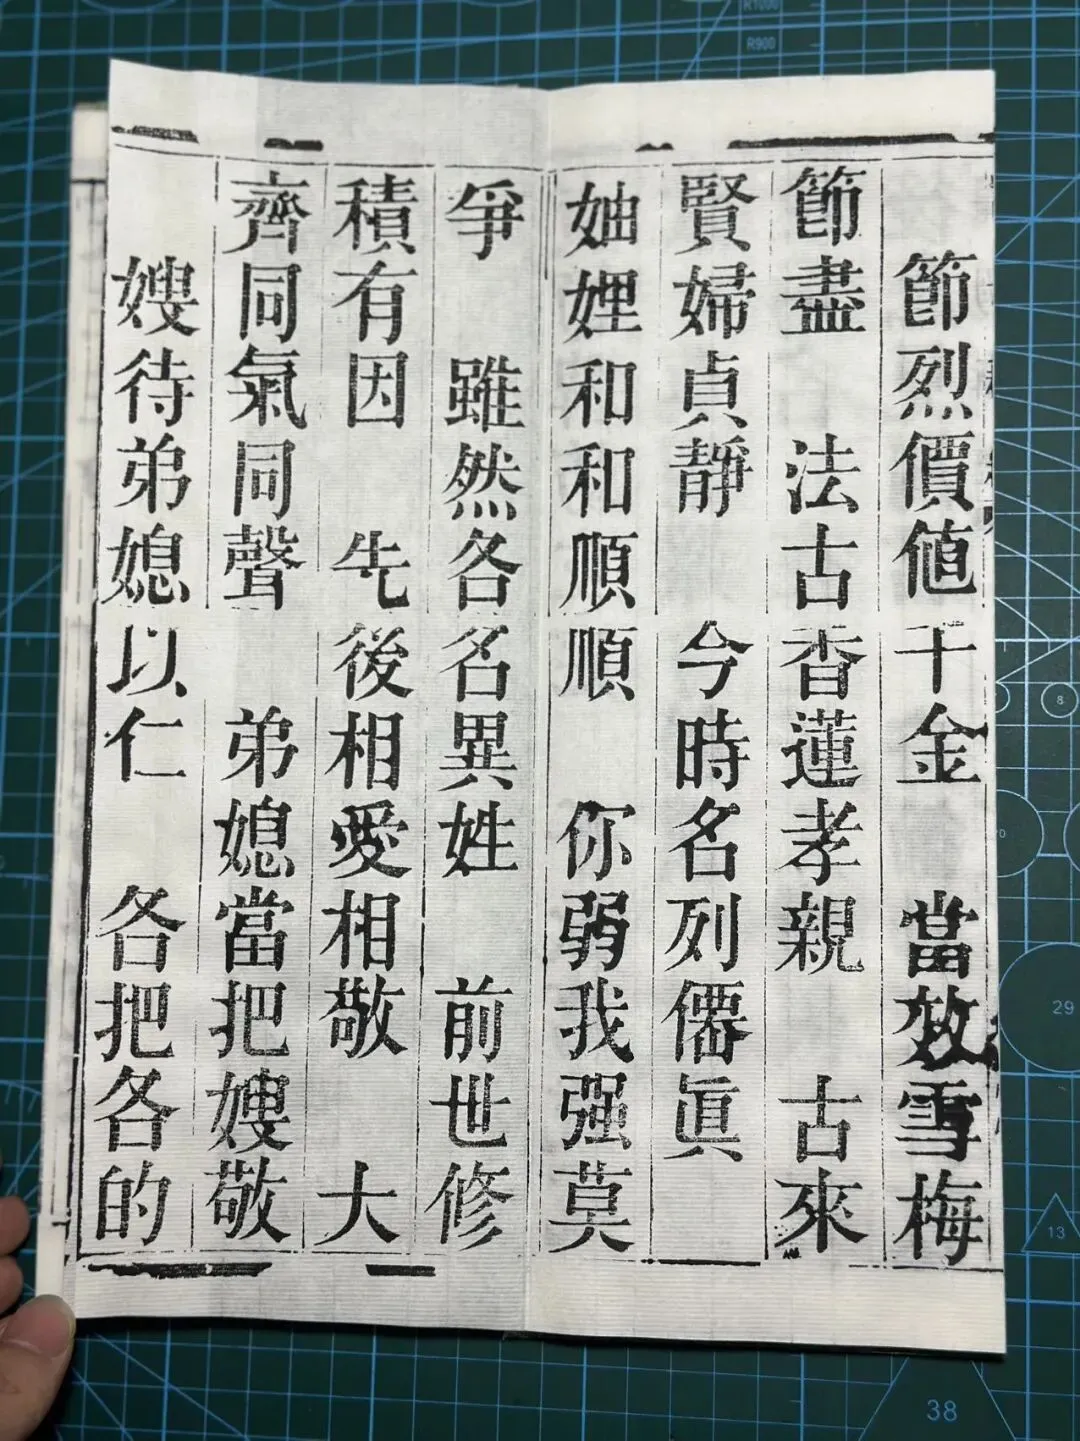 節烈價値千金　當效雪梅
節盡　法古香蓮孝親　古來
賢婦貞靜　今時名列僊眞
妯娌和和順順　你弱我强莫
爭　雖然各名異姓　前世修
積有因　先後相愛相敬　大
齊同氣同聲　弟媳當把嫂敬
嫂待弟媳以仁　各把各的
R1000
R900
8
29
13
38